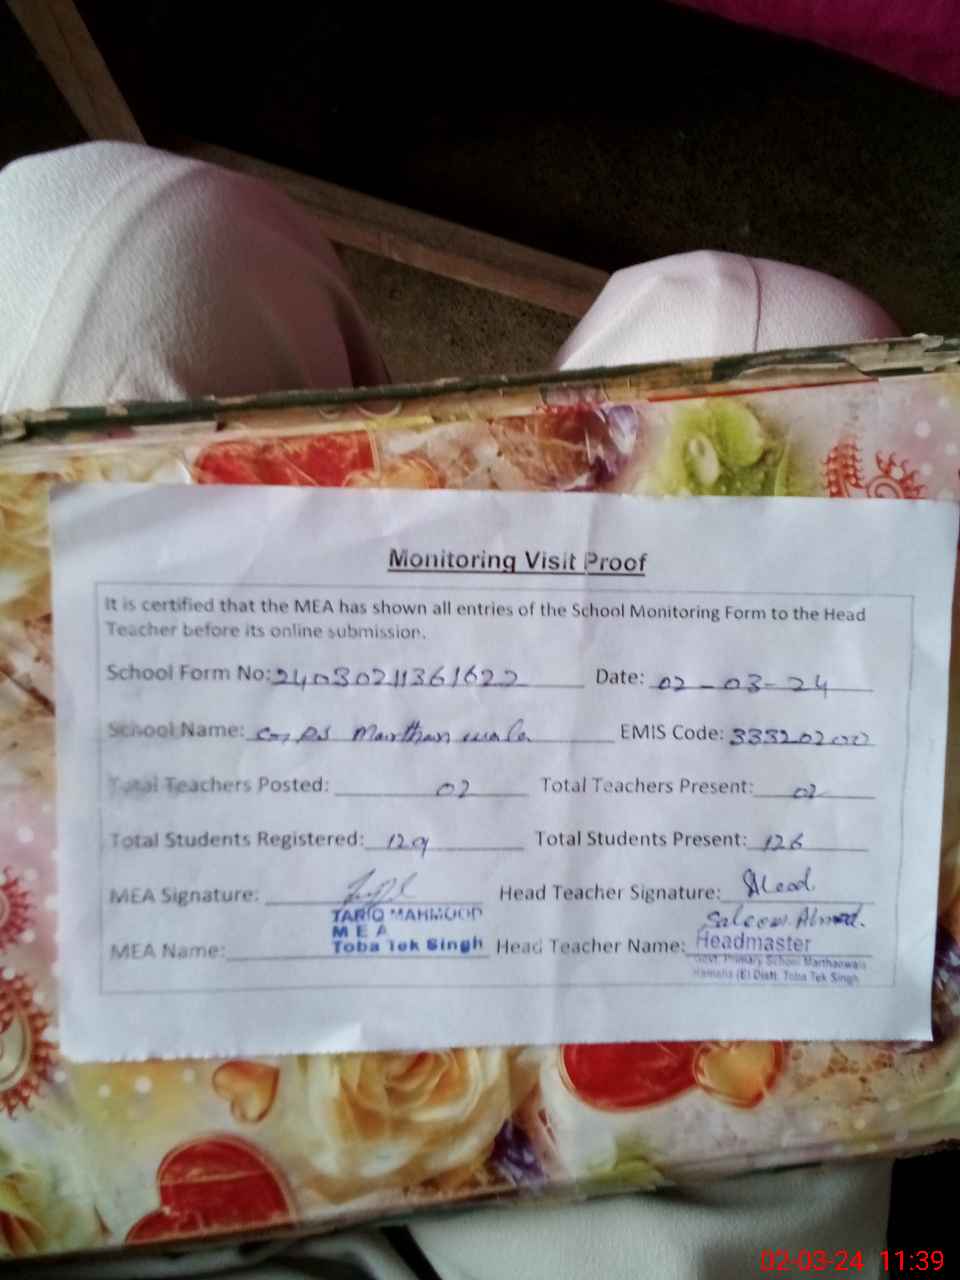 Monitoring Visit Proof
It is certified that the MEA has shown all entries of the School Monitoring Form to the Head
Teacher before its online submission.
School Form No: 24030211361622 Date: 02-03-24
School Name: GPS Marthanwala EMIS Code:
Total Teachers Posted: 02 Total Teachers Present: 02
Total Students Registered: 129 Total Students Present: 126
MEA Signature: Head Teacher Signature:
TARIQ MAHMOOD Saleem Ahmad.
MEA
MEA Name: Toba Tek Singh Head Teacher Name: Headmaster
Govt. Primary School Marthanwala
Kamalia (E) Distt. Toba Tek Singh
02-03-24 11:39